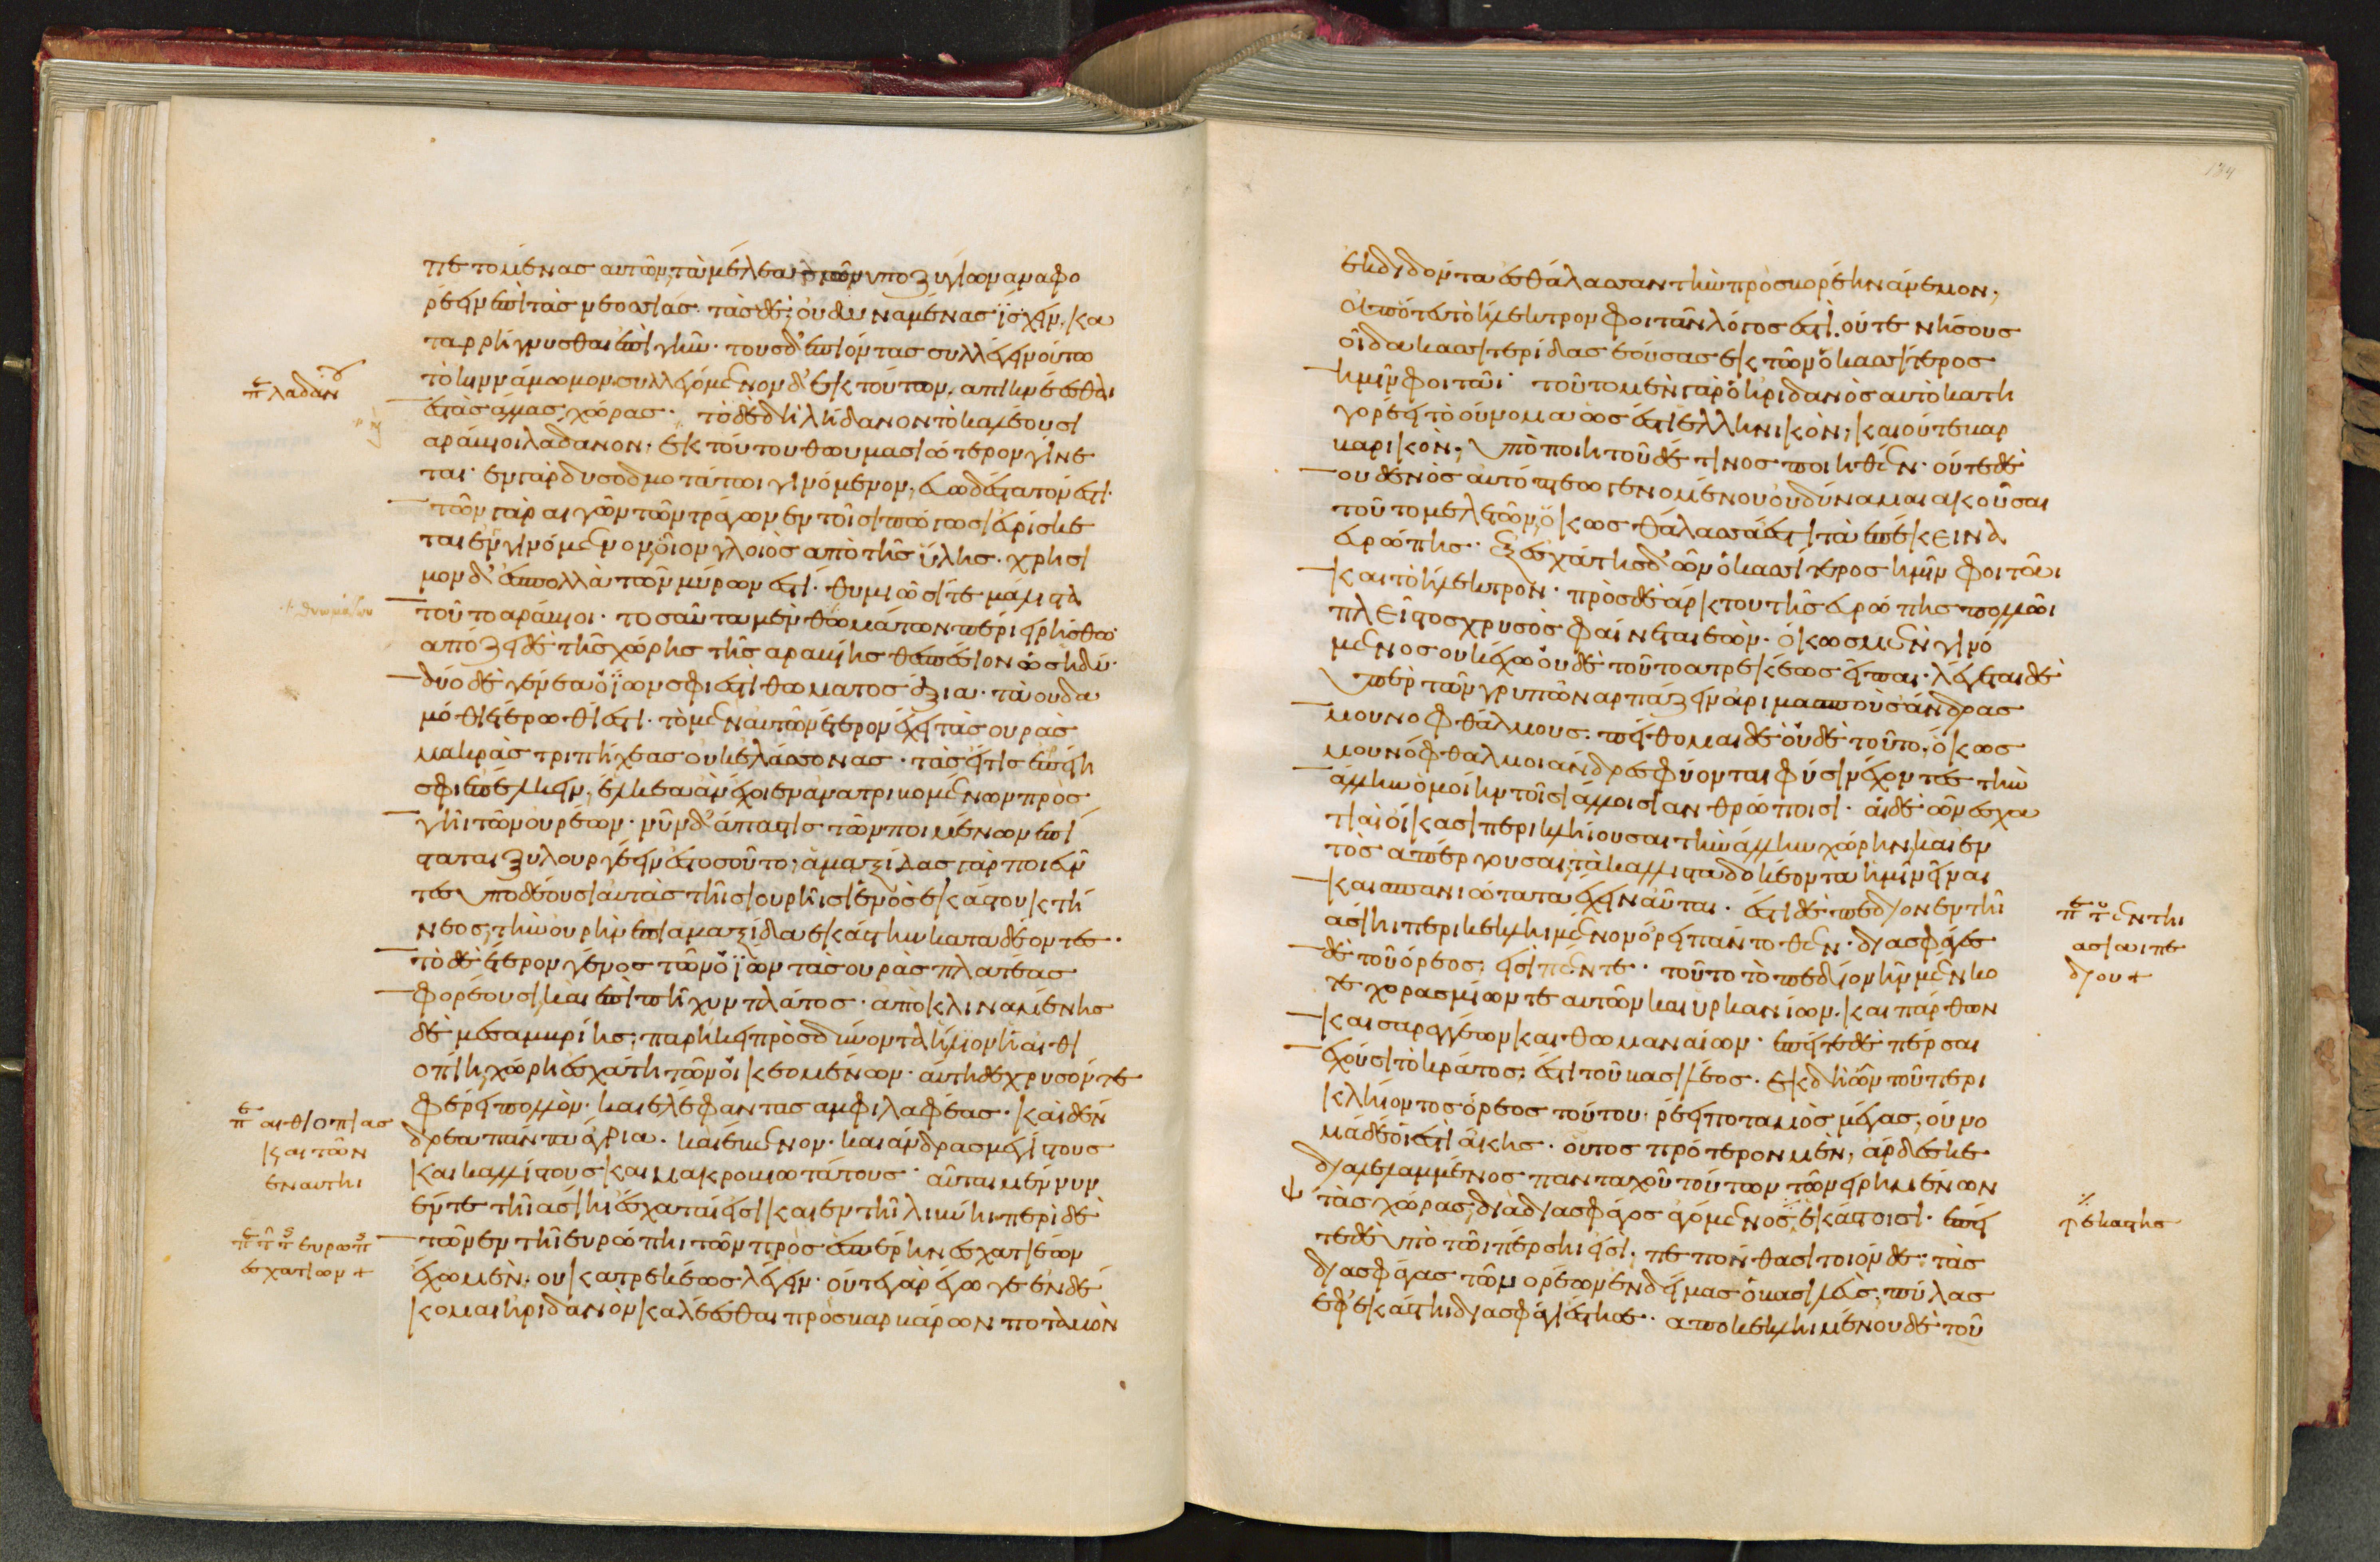 πετομένας αυτῶν, τὰ μέλεα τῶν ὑποζυγίων αναφο
ρέειν ἐπὶ τὰς νεοσσιάς. τὰς δὲ οὐ δυναμένας ἴσχειν, κα
ταρρήγνυσθαι ἐπὶ γῆν. τοὺς δ' ἐπιόντας συλλέγειν οὕτω
τὸ κιννάμωμον. συλλεγόμενον δ' ἐκ τούτων, απικνέεσθαι
ἐς τὰς ἄλλας χώρας. τὸ δὲ δὴ λήδανον τὸ καλέουσι
αράβιοι λάδανον. ἐκ τούτου θωυμασιώτερον γίνε
ται· ἐν γὰρ δυσοδμοτάτωι γινόμενον, εὐωδέστατόν ἐστι.
τῶν γὰρ αιγῶν τῶν τράγων ἐν τοῖσι πώγωσι εὑρίσκε
ται ἐγγινόμενον, οἷον γλοιὸς ἀπὸ τῆς ὕλης. χρήσι
μον δ' ἐς πολλὰ τῶν μύρων ἐστί. θυμιῶσί τε μάλιστα
τοῦτο αράβιοι. τοσαῦτα μὲν θωμάτων πέρι εἰρήσθω.
απόζει δὲ τῆς χώρης τῆς αραβίης θεσπέσιον ὡς ἡδύ.
δύο δὲ γένεα ὀΐων σφι ἐστὶ θώματος ἄξια. τὰ ουδα
μόθι ἑτέρωθί ἐστι. τὸ μὲν αὐτῶν ἕτερον ἔχει τὰς ουρὰς
μακρὰς τριπήχεας ουκ ἐλάσσονας. τὰς εἴ τις ἐπείη
σφι ἐπέλκειν, ἕλκεα ἂν ἔχοιεν ἀνατριβομένων πρὸς
γῆι τῶν ουρέων. νῦν δ' ἅπας τις τῶν ποιμένων ἐπί
σταται ξυλουργέειν ἐς τοσοῦτο, ἁμαξίδας γὰρ ποιεῦν
τες ὑποδέουσι αὐτὰς τῆισι ουρῆισι ἑνὸς ἑκάστου κτή
νεος, τὴν ουρὴν ἐπ' αμαξίδα ἑκάστην καταδέοντες.
τὸ δὲ ἕτερον γένος τῶν ὀΐων τὰς ουρὰς πλατέας
φορέουσι, καὶ ἐπὶ πῆχυν πλάτος. ἀποκλιναμένης
δὲ μεσαμβρίης, παρήκει πρὸς δύνοντα ἥλιον ἡ αιθι
οπίη χώρη ἐσχάτη τῶν οἰκεομένων. αὕτη δὲ χρυσόν τε
φέρει πολλὸν. καὶ ἐλέφαντας αμφιλαφέας. καὶ δέν
δρεα πάντα ἄγρια. καὶ ἔβενον. καὶ άνδρας μεγίστους
καὶ καλλίστους καὶ μακροβιωτάτους. αὗται μέν νυν
ἔν τε τῆι ασίηι ἐσχατιαί εἰσι καὶ ἐν τῆι λιβύηι. περὶ δὲ
τῶν ἐν τῆι ευρώπηι τῶν πρὸς ἑσπέρην ἐσχατιέων
ἔχω μὲν, ουκ ατρεκέως λέγειν. οὔτε γὰρ ἔγωγε ἐνδέ
κομαι ἠριδανὸν καλέεσθαι πρὸς καρκάρων ποταμὸν
πε λαδάν
πε αιθιοπίας
καὶ τῶν
εν αυτῆι
πε τῶν τῆς ευρώπης
εσχατιῶν +
ἐκδιδόντα ἐς θάλασσαν τὴν πρὸς βορέην ἄνεμον,
ἀπ' ὅτευ τὸ ἤλεκτρον φοιτᾶν λόγος ἐστὶ. οὔτε νήσους
οἶδα κασσιτερίδας ἐούσας ἐκ τῶν ὁ κασσίτερος
ἡμῖν φοιτᾶι. τοῦτο μὲν γὰρ ὁ ἠριδανὸς αὐτὸ κατη
γορέει τὸ ούνομα ὡς ἐστὶ ἑλληνικὸν, καὶ ούτε βαρ
βαρικὸν, ὑπὸ ποιητοῦ δέ τινος ποιηθέν. οὔτε δὲ
ουδενὸς αὐτόπτεω γενομένου ου δύναμαι ακοῦσαι
τοῦτο μελετῶν, ὅκως θάλασσά ἐστι τὰ ἐπέκεινα
ευρώπης. ἐξ ἐσχάτης δ' ὦν ὁ κασσίτερος ἡμῖν φοιτᾶι
καὶ τὸ ἤλεκτρον. πρὸς δὲ άρκτου τῆς ευρώπης πολλῶι
πλεῖστος χρυσὸς φαίνεται ἐὼν. ὅκως μὲν γινό
μενος ουκ έχω οὐδὲ τοῦτο ατρεκέως εἶπαι. λέγεται δὲ
ὑπὲρ τῶν γρυπῶν αρπάζειν ἀριμασποὺς άνδρας
μουνοφθάλμους. πείθομαι δὲ οὐδὲ τοῦτο, ὅκως
μουνόφθαλμοι άνδρες φύονται φύσιν ἔχοντες τὴν
ἄλλην ὁμοίην τοῖσι ἄλλοισι ανθρώποισι. αἱ δὲ ὦν ἐσχα
τιαὶ οίκασι περικληίουσαι τὴν άλλην χώρην καὶ ἐν
τὸς απέργουσαι, τὰ κάλλιστα δοκέοντα ἡμῖν εἶναι
καὶ σπανιώτατα ἔχειν αὗται. ἔστι δὲ πεδίον ἐν τῆι
ασίηι περικεκληιμένον όρει πάντοθεν. διασφάγες
δὲ τοῦ όρεος, εἰσὶ πέντε. τοῦτο τὸ πεδίον ἦν μὲν κο
τε χορασμίων τε αὐτῶν καὶ υρκανίων. καὶ πάρθων
καὶ σαραγγέων καὶ θωμαναίων. ἐπεί τε δὲ πέρσαι
ἔχουσι τὸ κράτος, ἐστὶ τοῦ βασιλέος. ἐκ δὴ ὦν τοῦ περι
κληίοντος όρεος τούτου, ῥέει ποταμὸς μέγας, ούνο
μα δέ οἱ ἐστὶ άκης. οὗτος πρότερον μὲν, ἄρδεσκε
διαλελαμμένος πανταχοῦ τούτων τῶν εἰρημένων
τὰς χώρας, διὰ διασφάγος ἀγόμενος, ἑκάστοισι. ἐπεί
τε δὲ ὑπὸ τῶι πέρσηι εἰσὶ, πεπόνθασι τοιόνδε. τὰς
διασφάγας τῶν ορέων ἐνδείμας ὁ βασιλεὺς, πύλας
ἐφ' ἑκάστηι διασφάγι ἔστησε. αποκεκληιμένου δὲ τοῦ
πε τοῦ ἐν τῆι
ασίαι πε
δίου +
ἑκάστης